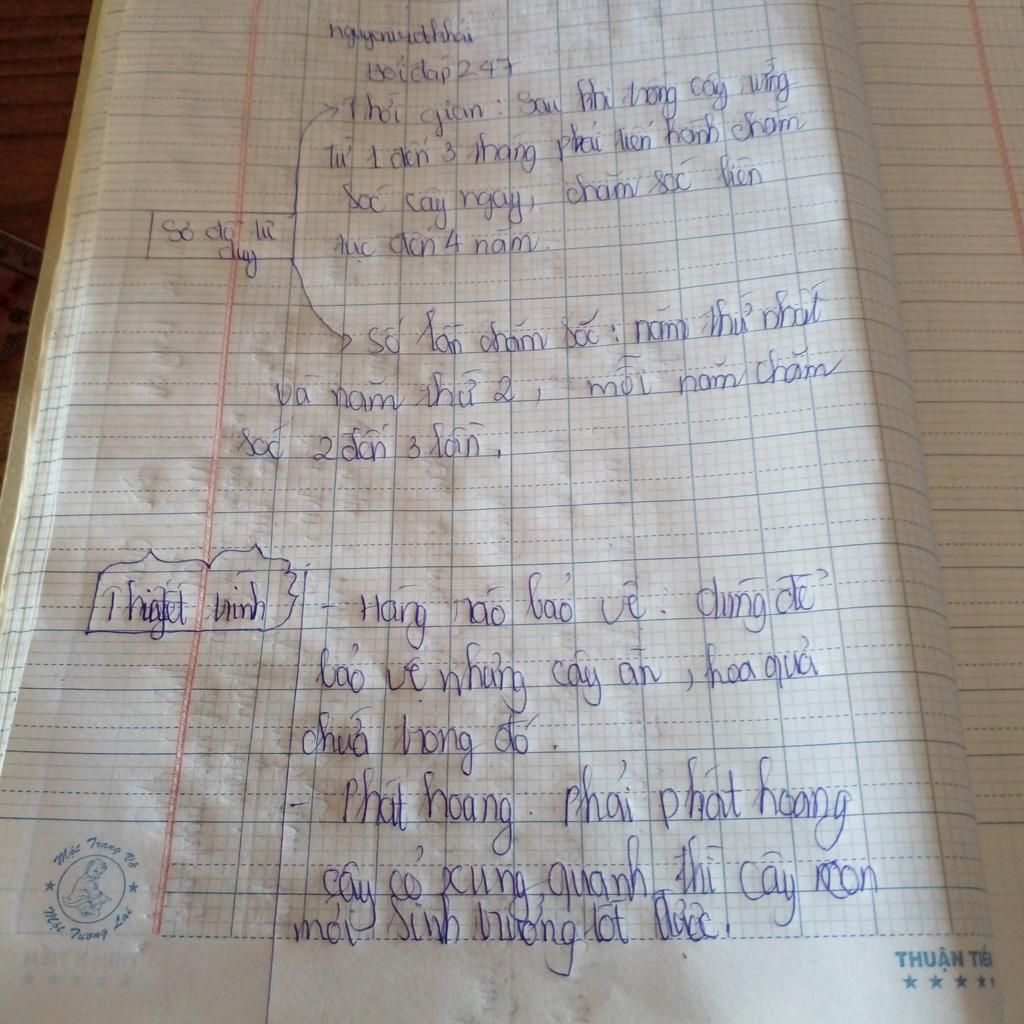 nguyenvietkhai
hoidap247
Thời gian: Sau khi trồng cây rừng
từ 1 đến 3 tháng phải tiến hành chăm
sóc cây ngay, chăm sóc liên
tục đến 4 năm.
Sơ đồ tư
duy
số lần chăm sóc: năm thứ nhất
và năm thứ 2, mỗi năm chăm
sóc 2 đến 3 lần.
Thuyết trình
- Hàng rào bảo vệ: dùng để
bảo vệ những cây ăn, hoa quả
chứa trong đó.
- Phát hoang. Phải phát hoang
cây cỏ xung quanh thì cây con
mới sinh trưởng tốt được.
Mộc Trang Vở
Một Tương Lai
THUẬN TIẾ